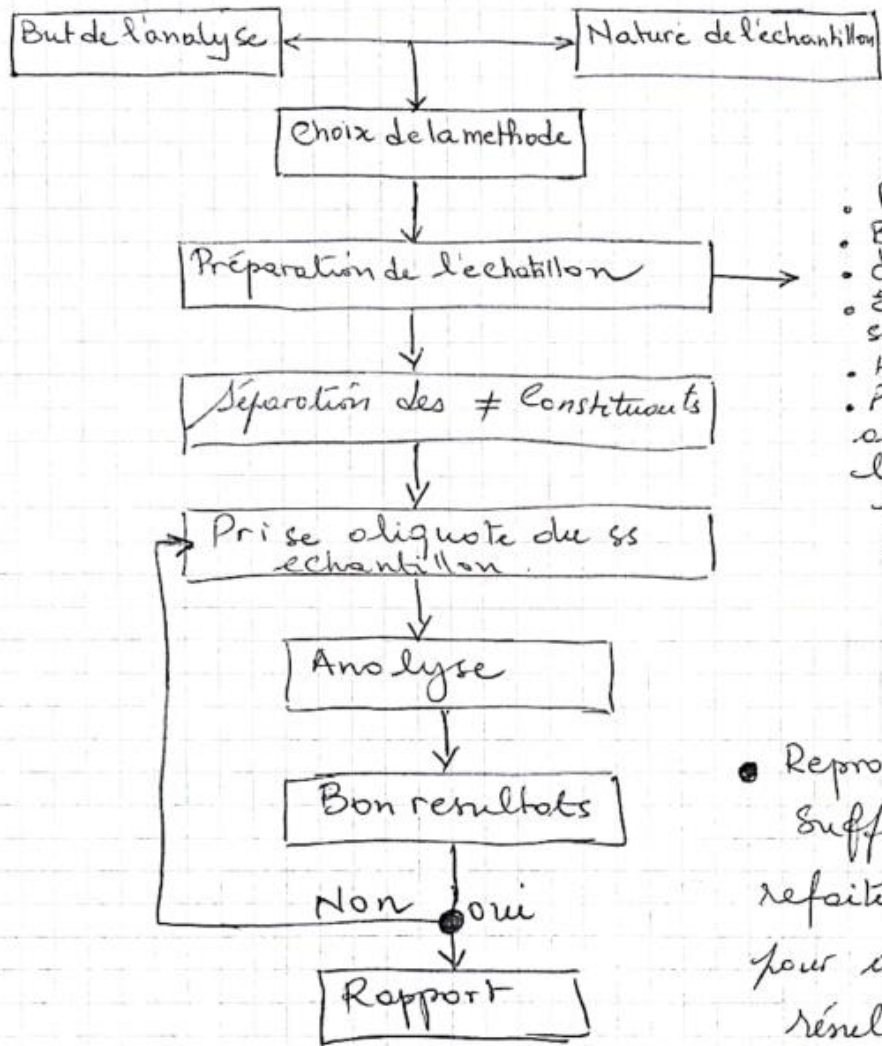 But de l'analyse
Nature de l'échantillon
Choix de la methode
Préparation de l'echatillon
Séparation des ≠ Constituants
Prise aliquote du ss
echantillon.
Analyse
Bon resultats
Non oui
Rapport